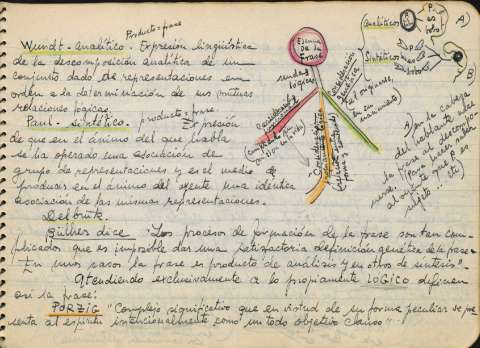 Producto-frase
Wundt-analítico. Expresión lingüística
de la descomposición analítica de un
conjunto dado de representaciones en
orden a la determinación de sus mutuas
relaciones lógicas.
producto-frase
Paul-sintético. Expresión
de que en el ánimo del que habla
se ha operado una asociación de
grupo de representaciones y es el medio de
producir en el ánimo del oyente una idéntica
asociación de las mismas representaciones.
Delbrük.
Bülher dice "Los procesos de formación de la frase son tan com-
plicados que es imposible dar una satisfactoria definición genética de la frase
En unos casos la frase es producto de análisis y en otros de síntesis".
Atendiendo exclusivamente a lo propiamente LOGICO definen
en la frase:
PORZIG "Complejo significativo que en virtud de su forma peculiar se pre-
senta al espíritu intencionalmente como un todo objetivo claro"
Esencia
De la
Frase
lógicos
genética
Analíticos
Sintéticos
A)
B
A) en la cabeza
del hablante
la frase se descompo-
ne.
al oyente que P es
sujeto